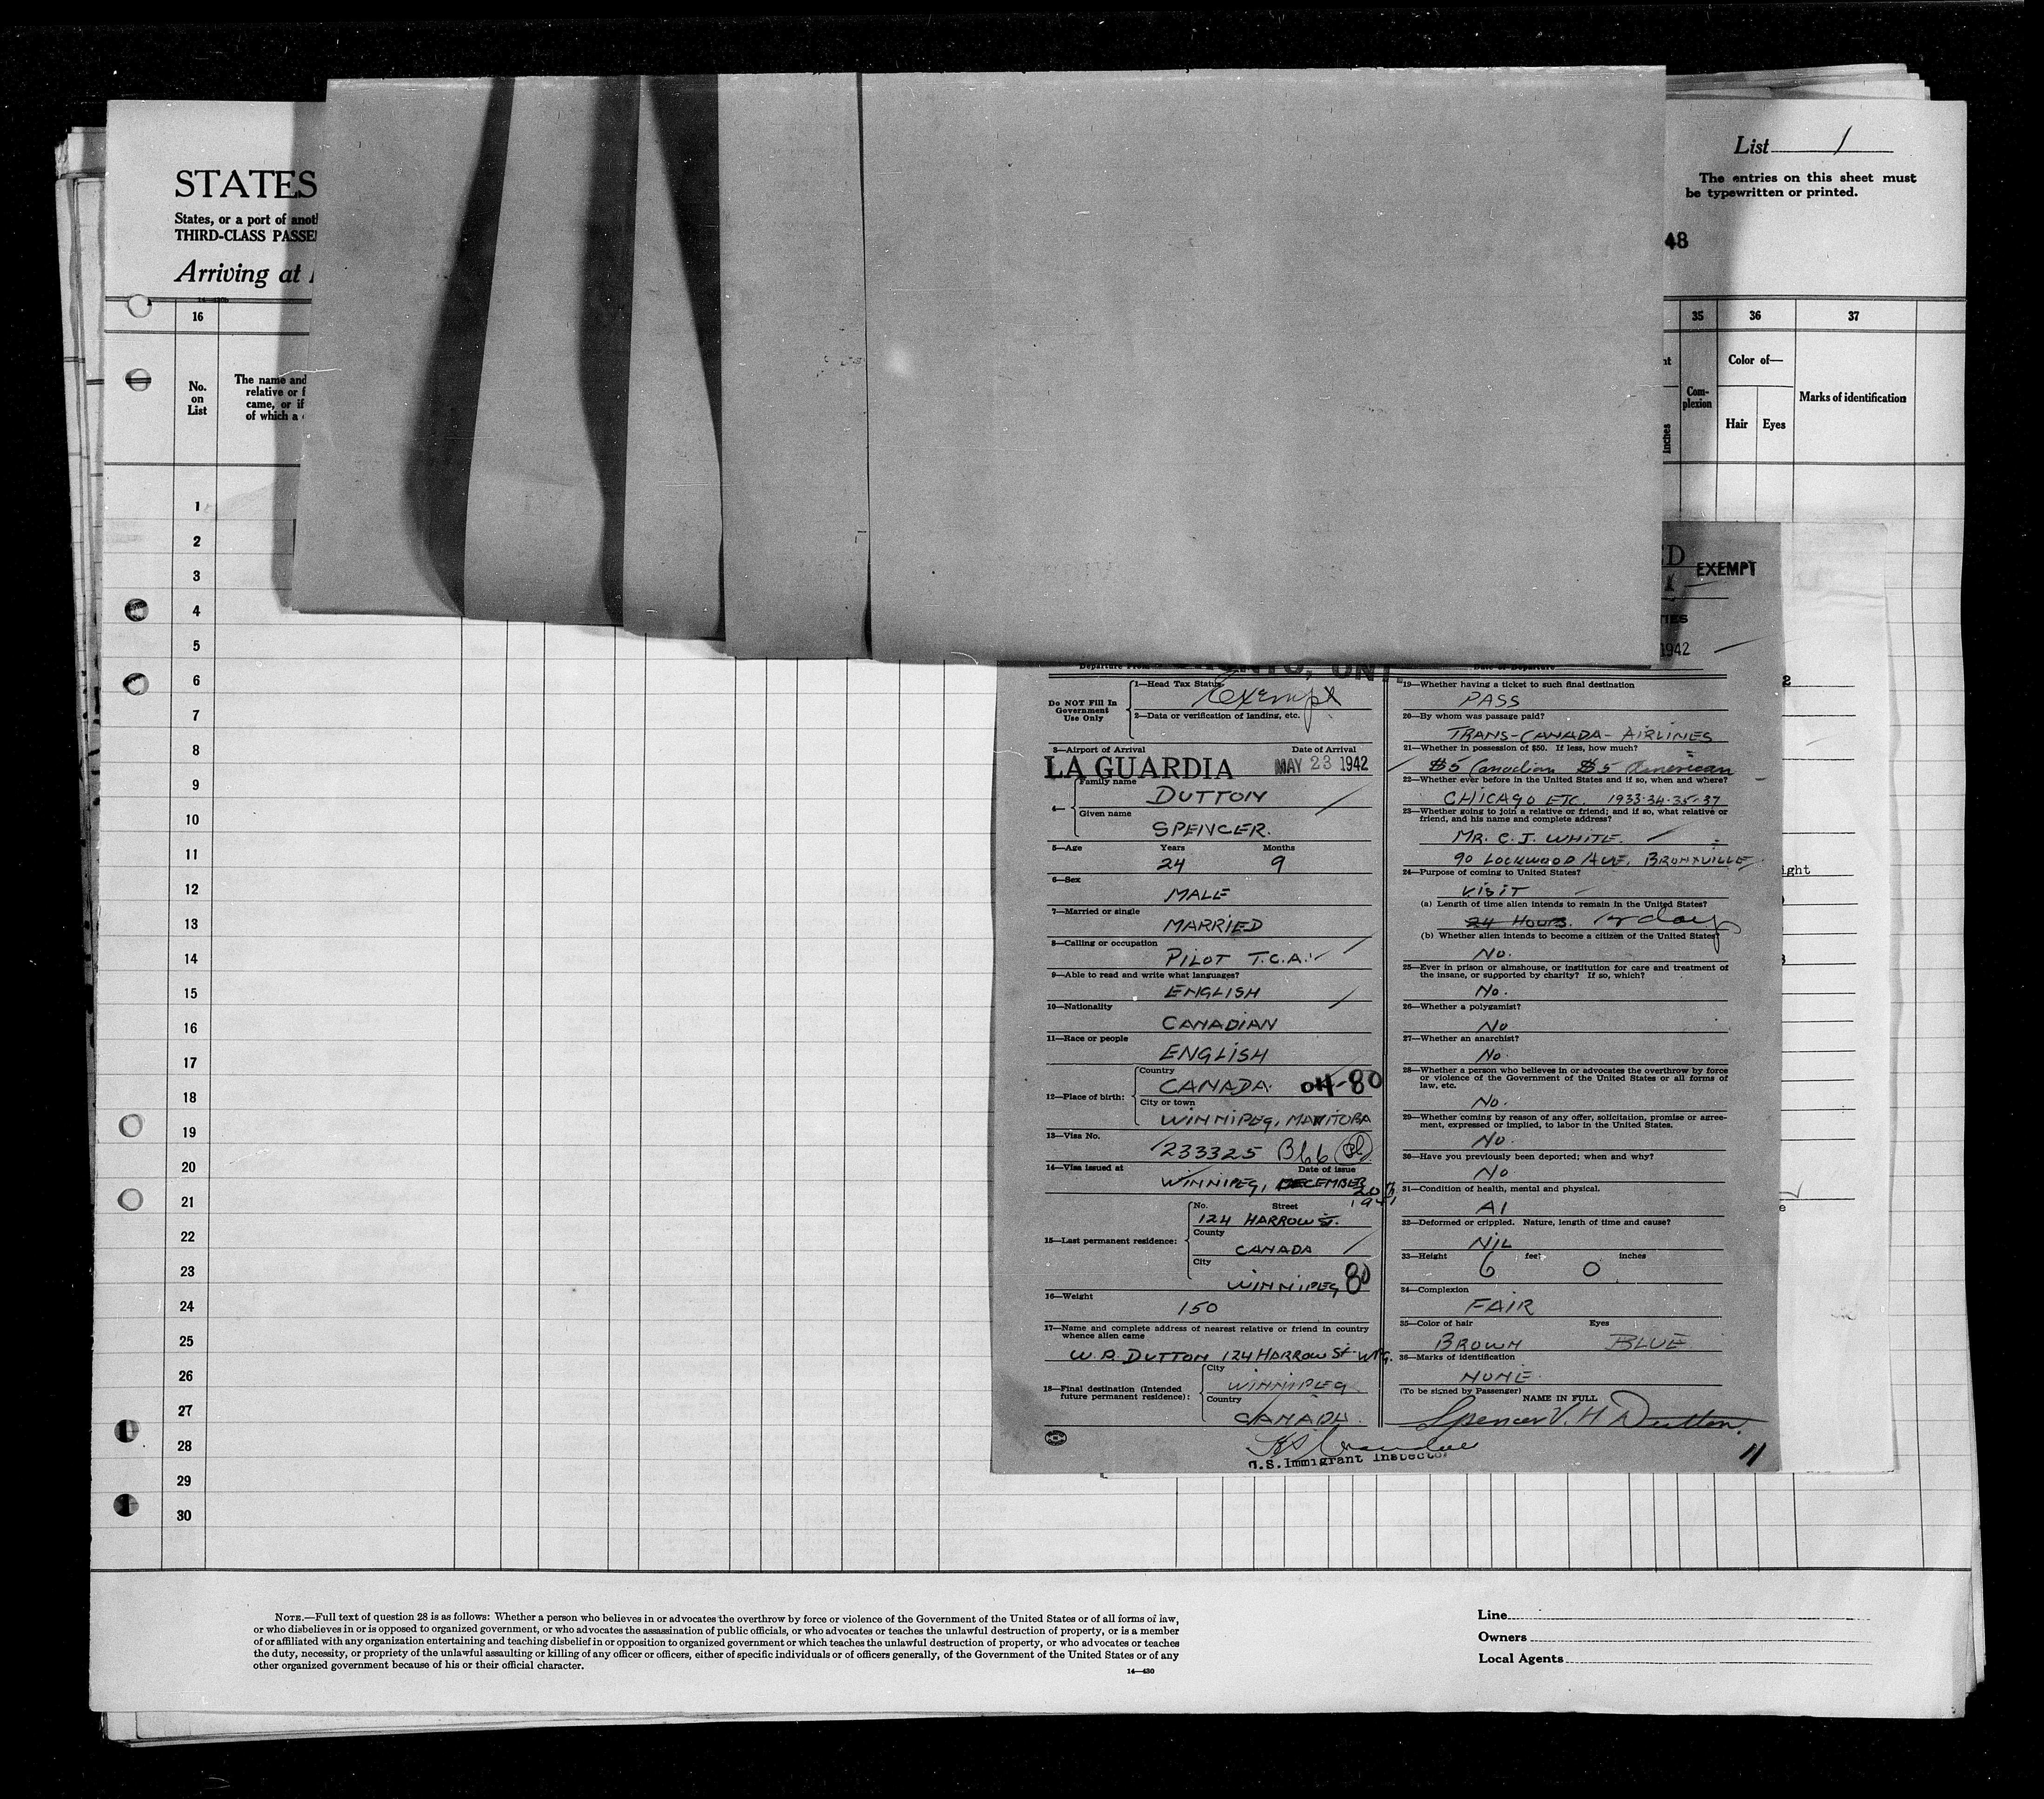 List 1
The entries on this sheet must
be typewritten or printed.
STATES
States, or a port of
THIRD-CLASS
Arriving at
48
16
35
36
37
No.
on
List
The name and
relative or
came, or if
of which a
inches
Com-
plexion
Color of—
Hair
Eyes
Marks of identification
1
2
3
4
5
6
7
8
9
10
11
12
13
14
15
16
17
18
19
20
21
22
23
24
25
26
27
28
29
30
EXEMPT
1942
Departure From
ONT.
Date of Departure
Do NOT Fill In
Government
Use Only
1—Head Tax Status
Exempt
2—Data or verification of landing, etc.
3—Airport of Arrival
Date of Arrival
LA GUARDIA
MAY 23 1942
4—
Family name
DUTTON
Given name
SPENCER.
5—Age
Years
Months
24
9
6—Sex
MALE
7—Married or single
MARRIED
8—Calling or occupation
PILOT T.C.A.
9—Able to read and write what languages?
ENGLISH
10—Nationality
CANADIAN
11—Race or people
ENGLISH
12—Place of birth:
Country
CANADA.
80
City or town
WINNIPEG, MANITOBA
13—Visa No.
233325
14—Visa issued at
Date of issue
WINNIPEG, DECEMBER
20th
1941
15—Last permanent residence:
No.
Street
124 HARROW ST.
County
CANADA
City
WINNIPEG
80
16—Weight
150
17—Name and complete address of nearest relative or friend in country
whence alien came
DUTTON 124 HARROW St. WPG.
18—Final destination (Intended
future permanent residence):
City
WINNIPEG
Country
CANADA.
U.S. Immigrant Inspector
19—Whether having a ticket to such final destination
PASS
20—By whom was passage paid?
TRANS-CANADA-AIRLINES
21—Whether in possession of $50. If less, how much?
$5 Canadian $5 American
22—Whether ever before in the United States and if so, when and where?
CHICAGO ETC. 1933-34-35-37
23—Whether going to join a relative or friend; and if so, what relative or
friend, and his name and complete address?
MR. C. J. WHITE.
90 LOCKWOOD AVE, BRONXVILLE
24—Purpose of coming to United States?
VISIT
(a) Length of time alien intends to remain in the United States?
24 HOURS.
(b) Whether alien intends to become a citizen of the United States?
NO.
25—Ever in prison or almshouse, or institution for care and treatment of
the insane, or supported by charity? If so, which?
No.
26—Whether a polygamist?
No
27—Whether an anarchist?
No.
28—Whether a person who believes in or advocates the overthrow by force
or violence of the Government of the United States or all forms of
law, etc.
No.
29—Whether coming by reason of any offer, solicitation, promise or agree-
ment, expressed or implied, to labor in the United States.
No.
30—Have you previously been deported; when and why?
No
31—Condition of health, mental and physical.
A1
32—Deformed or crippled. Nature, length of time and cause?
NIL
33—Height
feet
inches
6
0
34—Complexion
FAIR
35—Color of hair
Eyes
BROWN
BLUE
36—Marks of identification
NONE.
(To be signed by Passenger)
NAME IN FULL
Spencer V. H Dutton.
11
NOTE.—Full text of question 28 is as follows: Whether a person who believes in or advocates the overthrow by force or violence of the Government of the United States or of all forms of law,
or who disbelieves in or is opposed to organized government, or who advocates the assassination of public officials, or who advocates or teaches the unlawful destruction of property, or is a member
of or affiliated with any organization entertaining and teaching disbelief in or opposition to organized government or which teaches the unlawful destruction of property, or who advocates or teaches
the duty, necessity, or propriety of the unlawful assaulting or killing of any officer or officers, either of specific individuals or of officers generally, of the Government of the United States or of any
other organized government because of his or their official character.
14—430
Line
Owners
Local Agents